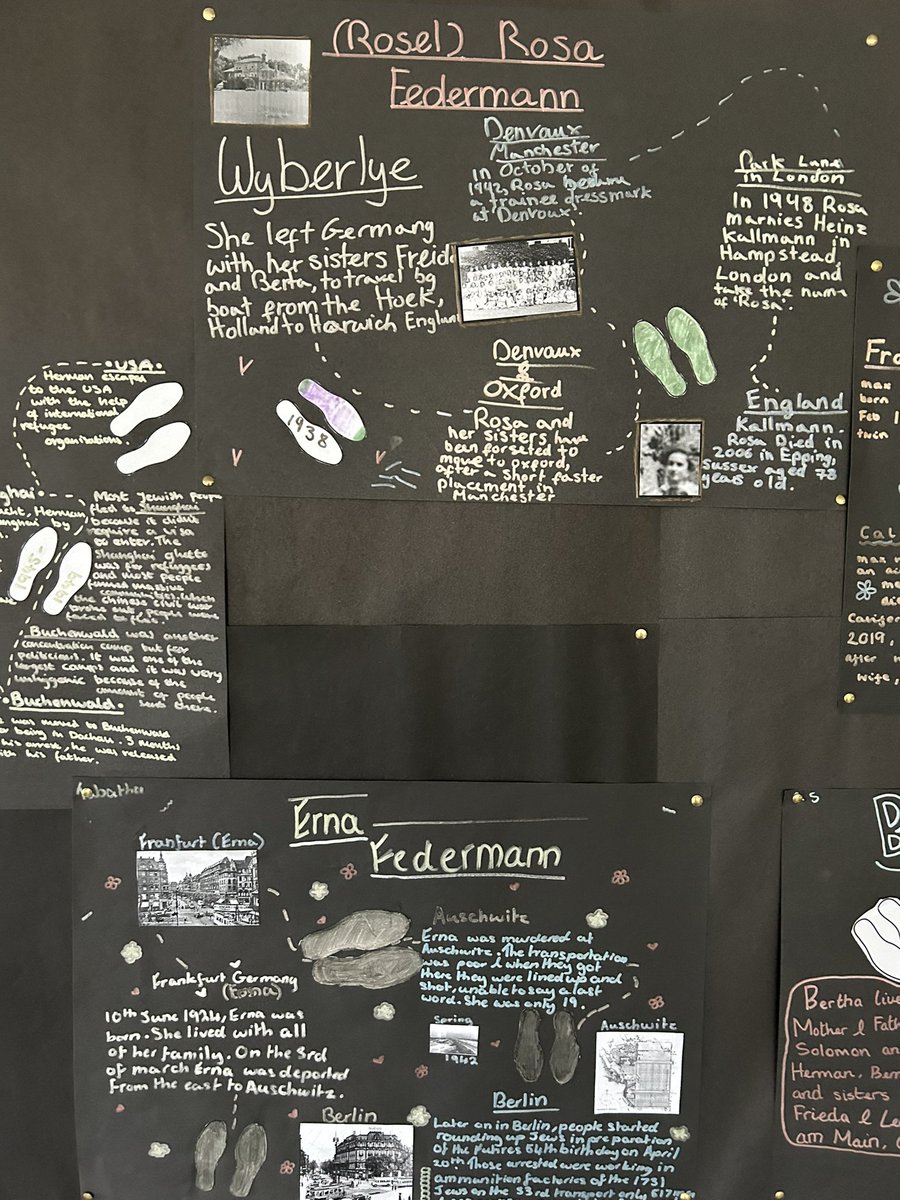 (Rosel) Rosa
Federmann
Wyberlye
She left Germany
with her sisters Freida
and Berta, to travel by
boat from the Hoek,
Holland to Harwich England
1938
Denvaux
Manchester
In October of
1942, Rosa became
a trainee dressmark
at Denvoux.
Denvaux
&
Oxford
Rosa and
her sisters have
been forseted to
move to oxford,
after a short faster
placement in
Manchester
Park Lane
in London
In 1948 Rosa
marnies Heinz
Kallmann in
Hampstead,
London and
take the name
of 'Rosa'.
England
Kallmann.
Rosa Died in
2006 in Epping,
Sussex aged 78
years old.
USA.
Herman escapes
to the USA
with the help
of international
refugee
organizations.
Herman
Most Jewish people
fled to Shanghai
because it didn't
require a visa
to enter. The
Shanghai ghetto
was for refugees
and most people
formed massive
communities. When
the chinese civil war
broke out, people were
forced to flee.
1949
Buchenwald was another
concentration camp but for
politicians. It was one of the
largest camps and it was very
unhygenic because of the
amount of people
sent there.
Buchenwald.
was moved to Buchenwald
being in Dachau. 3 months
his arrest, he was released
with his father.
Erna
Federmann
Franfurt (Erna)
Frankfurt Germany
(Erna)
10th June 1924, Erna was
born. She lived with all
of her family. On the 3rd
of march Erna was deported
from the east to Auschwitz.
Auschwitz
Erna was murdered at
Auschwitz. The transportation
was poor & when they got
there they were lined up and
shot, unable to say a last
word. She was only 19.
Spring
1942
Auschwitz
Berlin
Berlin
Later on in Berlin, people started
rounding up Jews in preparation
of the Fuhres 54th birthday on April
20th Those arrested were working in
ammunition factories of the 1731
Jews on the 33rd transport only
Fr
max
born
Feb 1
twin
Cal
max
an
me
die
2019,
after
wife,
D
D
Bertha live
Mother & Fath
Solomon an
Herman, Ber
and sisters
Frieda & Le
am Main,